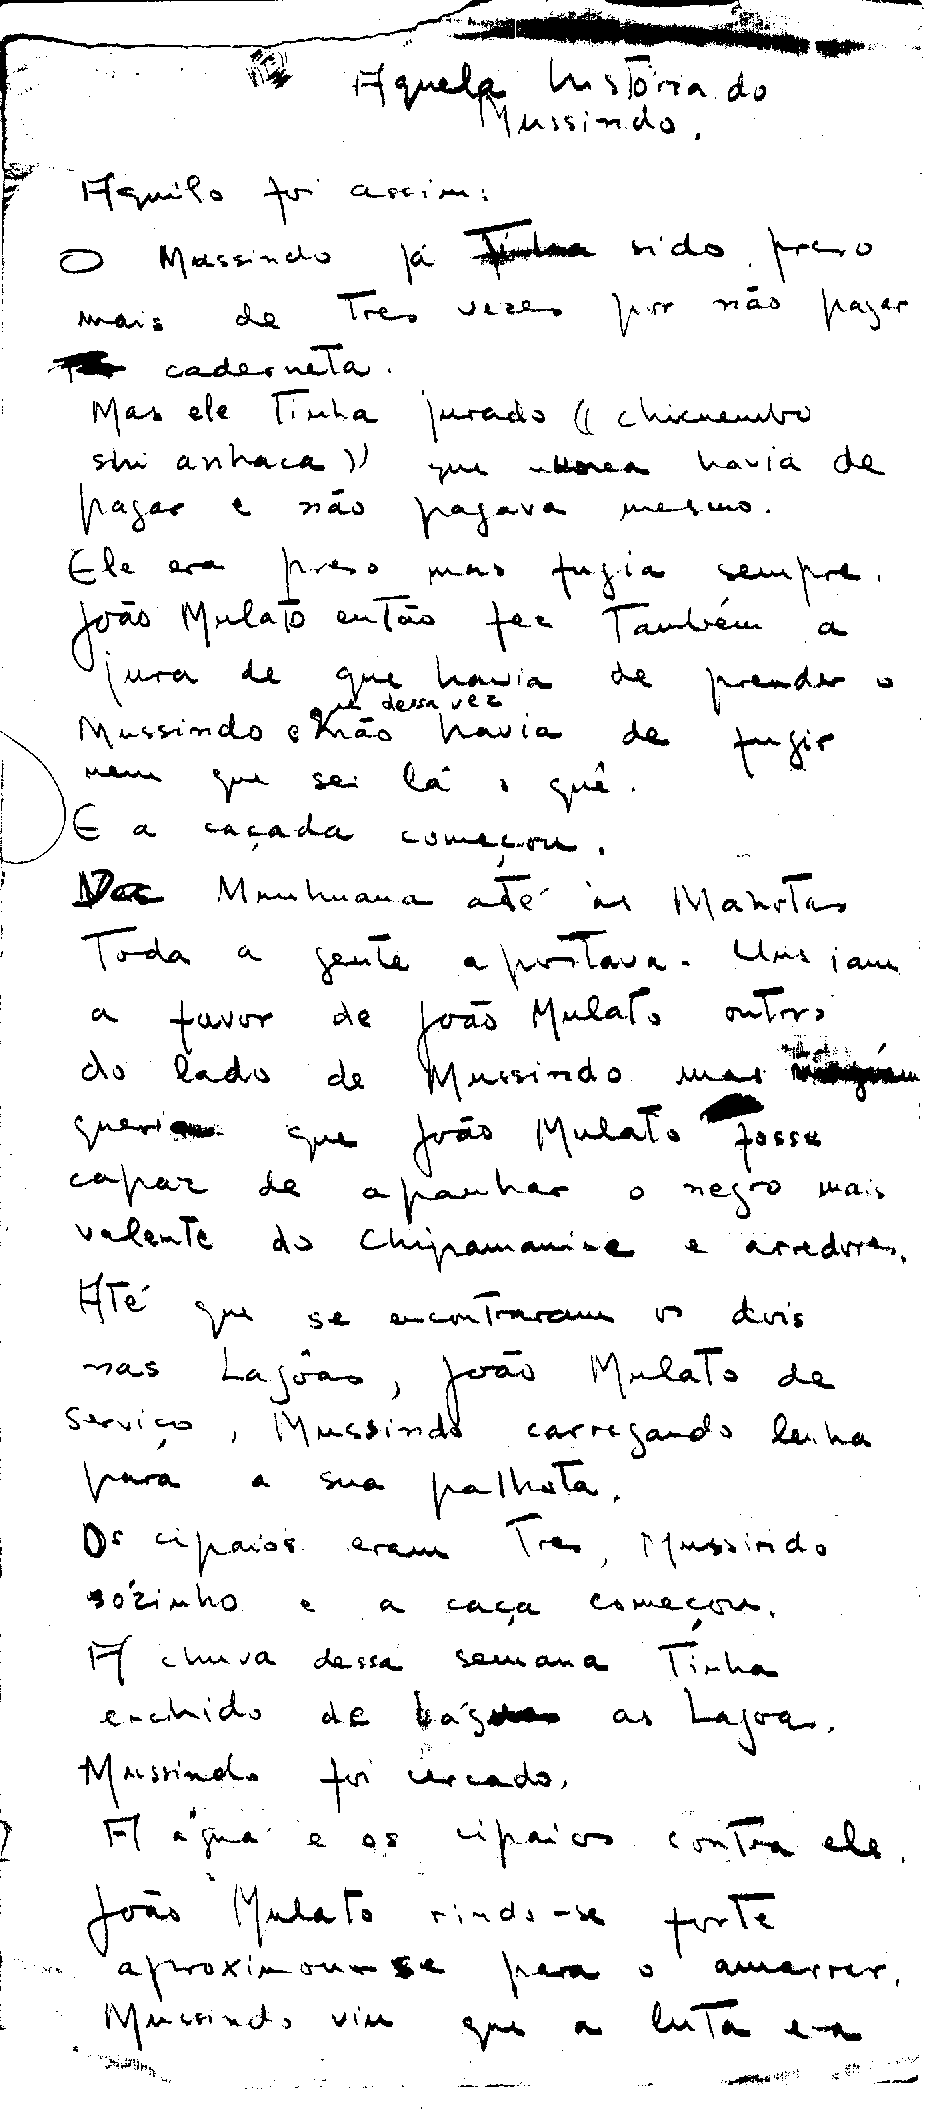 Aquela história do
Mussindo.
Aquilo foi assim:
O Mussindo já tinha sido preso
mais de tres vezes por não pagar
caderneta.
Mas ele tinha jurado ((chicuembo
shi anhaca)) que nunca havia de
pagar e não pagava mesmo.
Ele era preso mas fugia sempre.
João Mulato então fez também a
jura de que havia de prender o
que dessa vez
Mussindo e não havia de fugir
nem que sei lá o quê.
E a caçada começou.
Da Munhuana até às Mahotas
Toda a gente apostava. Uns iam
a favor de João Mulato outros
do lado de Mussindo mas ninguém
queria que João Mulato fosse
capaz de apanhar o negro mais
valente do Chipamanine e arredores.
Até que se encontraram os dois
nas Lagôas, João Mulato de
serviço, Mussindo carregando lenha
para a sua palhota.
Os cipaios eram tres, Mussindo
sózinho e a caça começou.
A chuva dessa semana tinha
enchido de água as Lagoas.
Mussindo foi cercado.
A água e os cipaios contra ele.
João Mulato rindo-se forte
aproximou-se para o amarrar.
Mussindo viu que a luta era